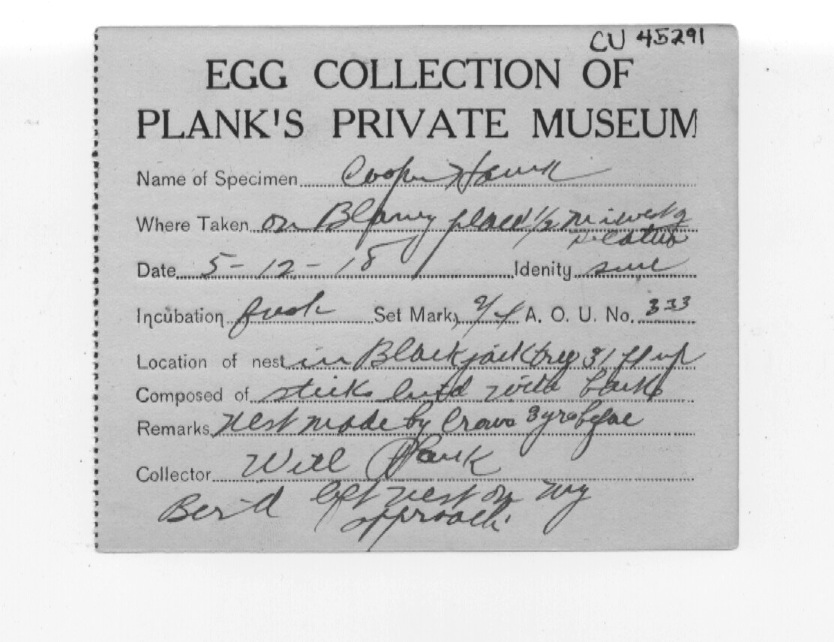 CU 45291
EGG COLLECTION OF
PLANK'S PRIVATE MUSEUM
Name of Specimen Cooper Hawk
Where Taken on Blaney place 1/2 mi west of
Decatur
Date 5-12-18 Idenity sure
Incubation fresh Set Mark A. O. U. No. 333
Location of nest in Blackjack tree 31 ft up
Composed of sticks lined with bark
Remarks Nest made by Crows 3 yrs before
Collector Will Plank
Bird left nest on my
approach.